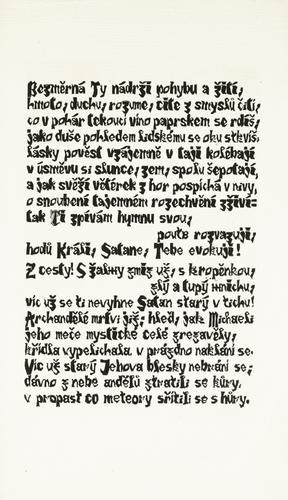 Bezměrná Ty nádrži pohybu a žití,
hmoto, duchu, rozume, cite z smyslů čití,
co v pohár tekoucí víno paprskem se rdíš,
jako duše pohledem lidskému se oku stkvíš,
lásky pověst vzájemně v taji kolébají
v úsměvu si slunce, zem, spolu šepotají,
a jak svěží větérek z hor pospíchá v nivy,
o snoubení tajemném rozechvění zživí-
tak Ti zpívám hymnu svou,
pouta rozvazuji,
hodů Králi, Satane, Tebe evokuji!
Z cesty! S žalmy zmiz už, s kropénkou,
zlý a tupý mnichu,
víc už se ti nevyhne Satan starý v tichu!
Archandělé mrtvi již; hleď, jak Michaeli
jeho meče mystické celé zrezavěly,
křídla vypelichala, v prázdno nakláni se.
Víc už starý Jehova blesky nebrání se;
dávno z nebe andělů ztratili se kůry,
v propast co meteory sřítili se s hůry.